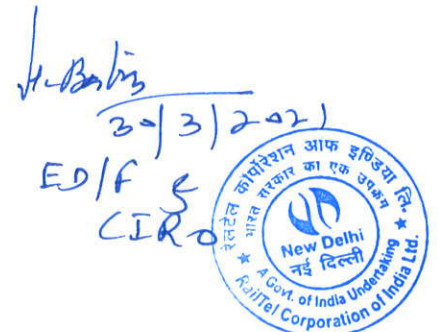 30/3/2021
ED/F &
CIRO
रेलटेल कॉर्पोरेशन आफ इण्डिया लि.
भारत सरकार का एक उपक्रम
New Delhi
नई दिल्ली
A Govt. of India Undertaking
RailTel Corporation of India Ltd.